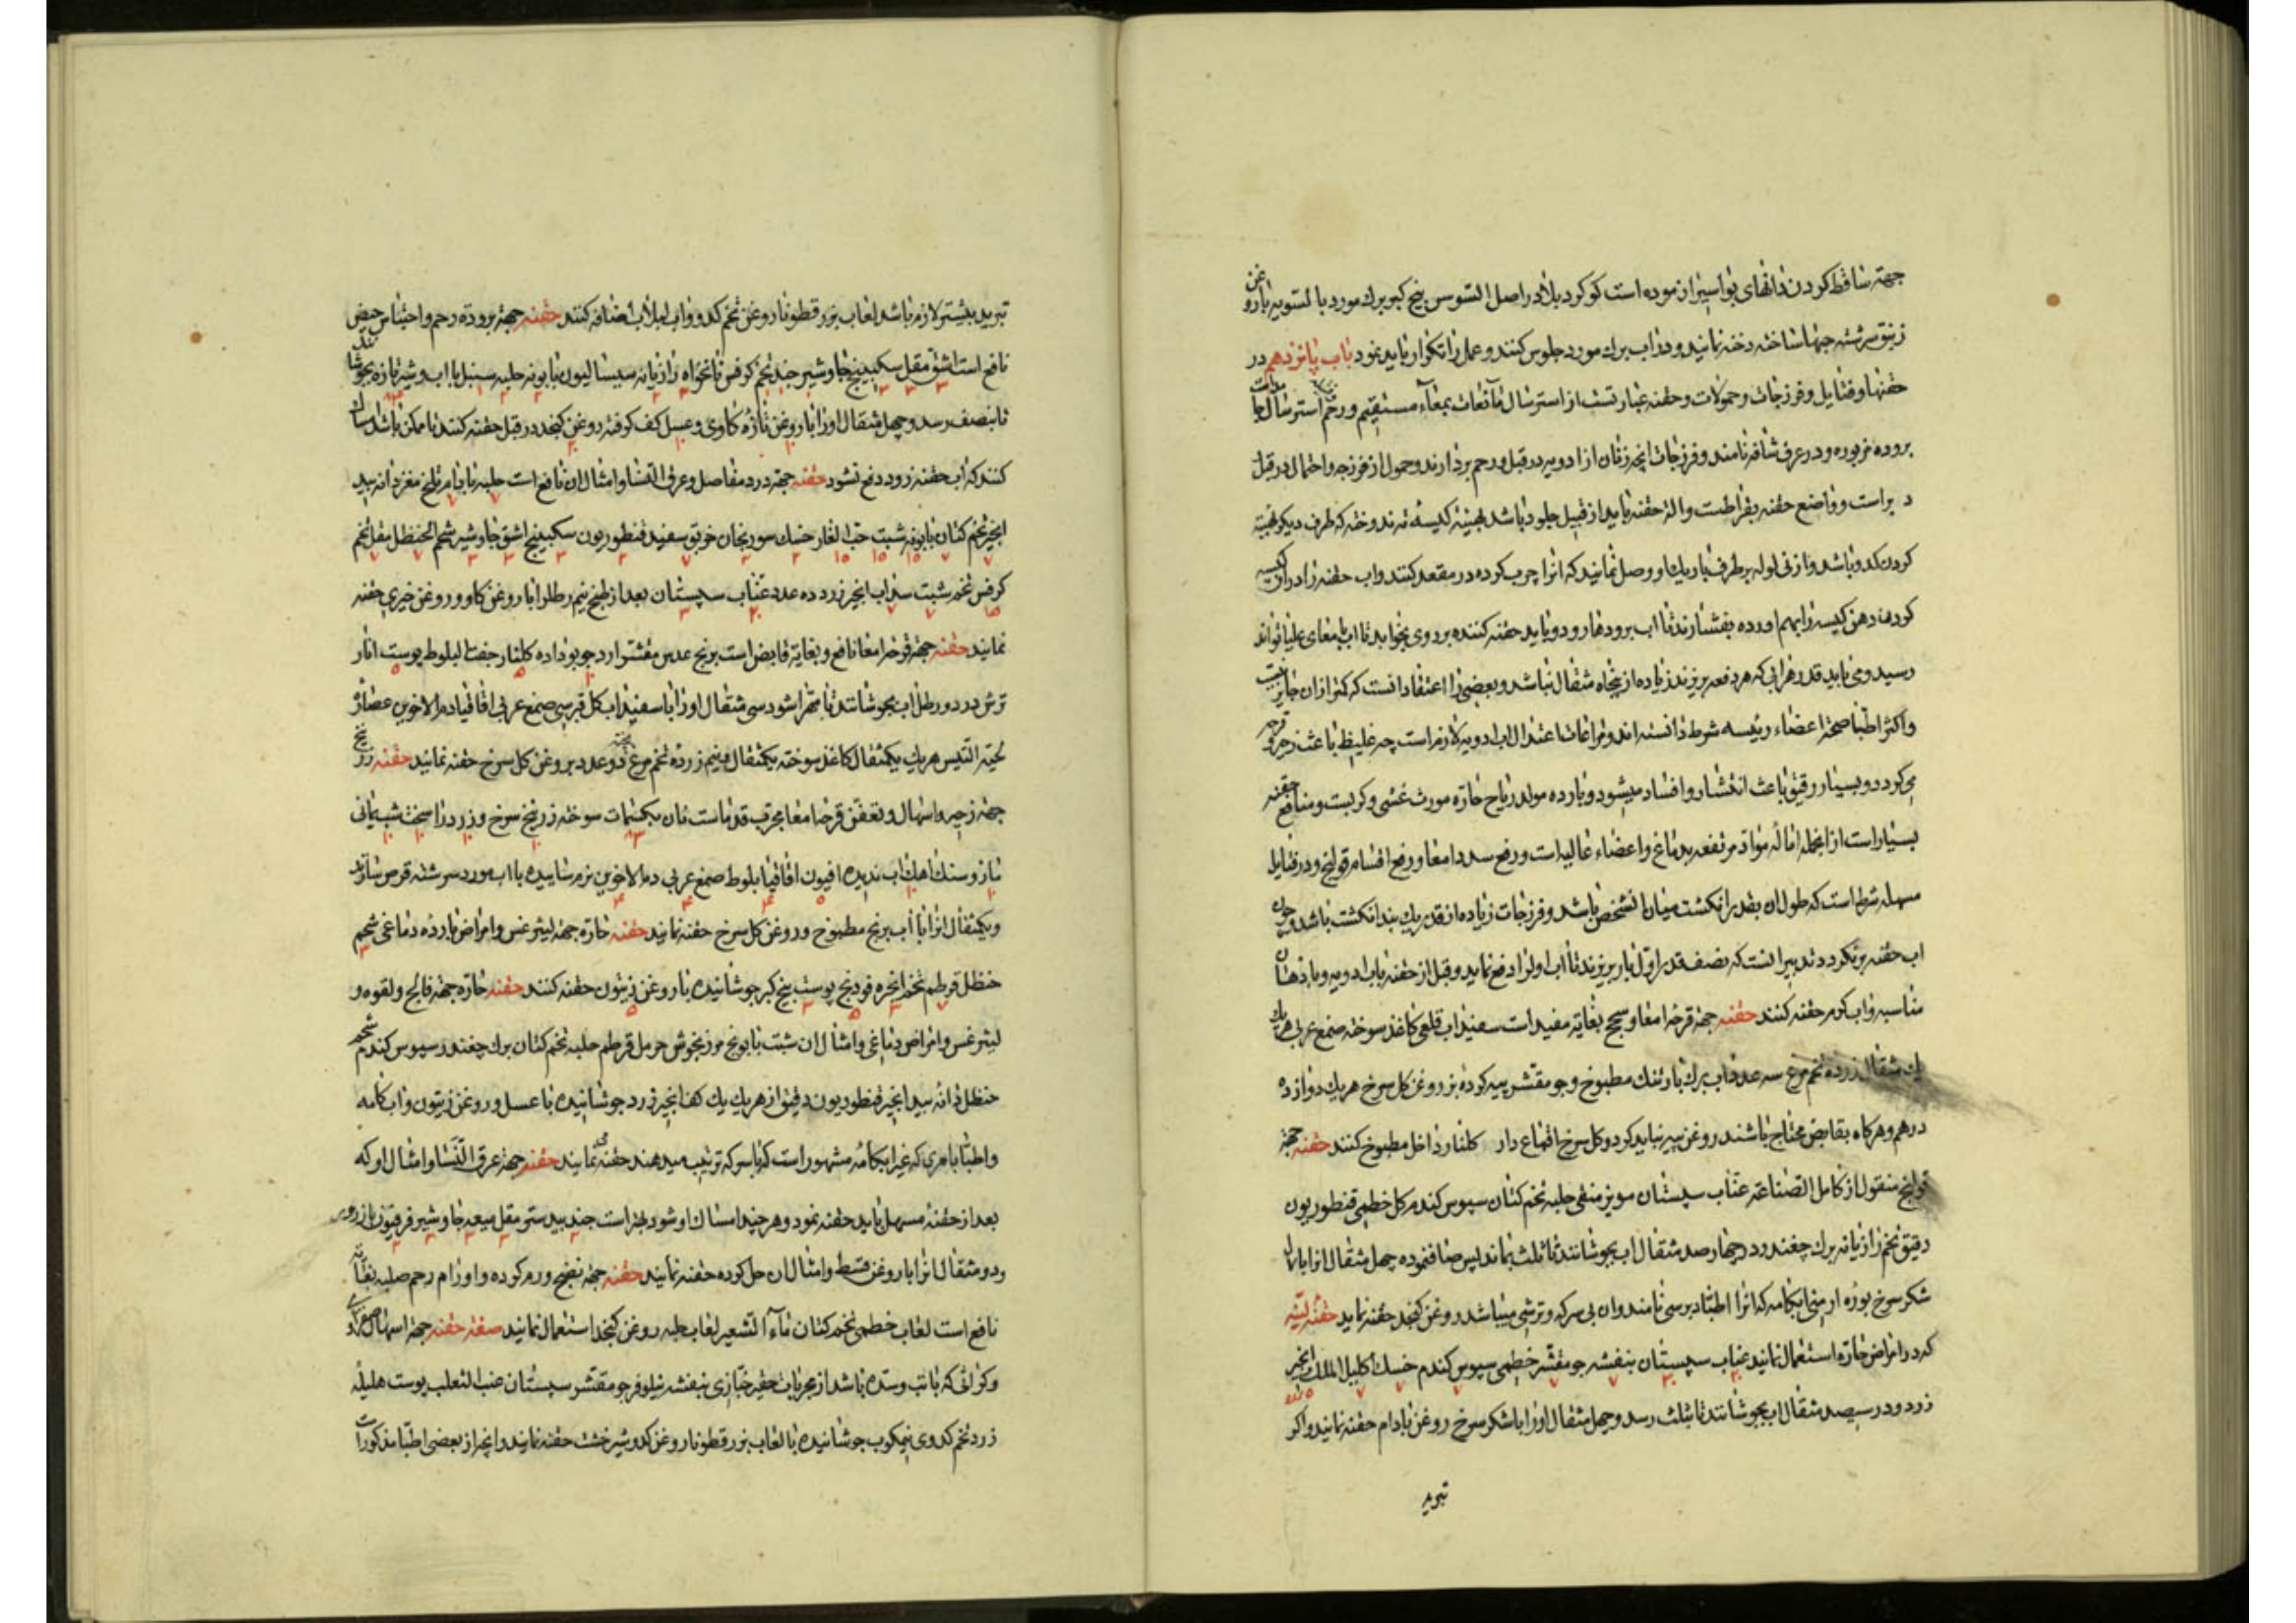 جهة ساقط کردن دانهای بواسیر ازموده است کوکرد بلادر اصل السوس بیخ کبر برك مورد بالسویه باروغن
زنبق سرشته حبها ساخته دخنه نمایند و در اب برك مورد جلوس کنند و عمل را تکرار باید نمود باب پانزدهم در
حقنها و فتایل و فرزجات و حمولات و حقنه عبارتست از استرسال مآئعات بمعآء مستقیم و رحم استرسال
بروده مزبوره و در عرف شافه نامند و فرزجات انچه زنان از ادویه در قبل و رحم بردارند و حمول از فرزجه و احتمال در قبل
و دبر است و واضع حقنه بقراطست و الة حقنه باید از قبیل جلود باشد بهیئة کیسۀ ته ندوخته که طرف دیکر بهیئة
کردن کدو باشد و از نی لوله بر طرف باریك او وصل نمایند که انرا چرب کرده در مقعد کنند و اب حقنه را در ان کیسه
کرده دهن کیسه را بهم اورده بفشارند تا اب برودها رود و باید حقنه کننده بر روی بخوابد تا اب بامعای علیا تواند
رسید و می باید قدر هر ابی که هر دفعه بریزند زیاده از پنجاه مثقال نباشد و بعضی را اعتقاد انست که کمتر از ان جایز نیست
و اکثر اطبا صحة اعضاء رئیسه شرط دانسته اند و مراعات اعتدال اب ادویه لازم است چه غلیظ باعث زحیر و قرحه
می کردد و بسیار رقیق باعث انتشار و افساد میشود و بارده مولد ریاح حاره مورث غشی و کربست و منافع حقنه
بسیار است از انجمله امالۀ مواد مرتفعه بدماغ و اعضاء عالیه است و رفع سدد امعا و رفع اقسام قولنج و در فتایل
مسهله شرط است که طول ان بقدر انکشت میان انشخص باشد و فرزجات زیاده از قدر یك بند انکشت باشد و چون
اب حقنه برنکردد تدبیر انست که نصف قدر اول بار بریزند تا اب اول را دفع نماید و قبل از حقنه باب ادویه و یا دهان
مناسبه و اب کرم حقنه کنند حقنه جهة قرحۀ امعا و سحج بغایة مفید است سفیداب قلعی کاغذ سوخته صمغ عربی هریك
یك مثقال زرده تخم مرغ سه عدد اب برك بارتنك مطبوخ و جو مقشر پیه کرده بز روغن کل سرخ هریك دوازده
درهم و هرکاه بقابض محتاج باشند روغن پیه نباید کرد و کل سرخ اقماع دار کلنار داخل مطبوخ کنند حقنه جهة
قولنج منقول از کامل الصناعه عناب سپستان مویز منقی حلبه تخم کتان سبوس کندم کل خطمی قنطوریون
دقیق تخم رازیانه برك چغندر در چهار صد مثقال اب بجوشانند تا ثلث بماند پس صاف نموده چهل مثقال انرا با
شکر سرخ بوره ارمنی ابکامه که انرا اطبا دبرسی نامند و ان بی سرکه و ترشی میباشد روغن کنجد حقنه نماید حقنۀ لینه
که در امراض حاره استعمال نمایند عناب سپستان بنفشه جو مقشر خطمی سبوس کندم خسك اکلیل الملك انجیر
زرد و در سیصد مثقال اب بجوشانند تا بثلث رسد و چهل مثقال اورا با شکر سرخ روغن بادام حقنه نمایند و اکر
تبرید
تبرید بیشتر لازم باشد لعاب بزرقطونا روغن تخم کدو و اب لبلاب اضافه کنند حقنه جهة برودة رحم و احتباس حیض
نافع است اشق مقل سکبینج جاوشیر جند تخم کرفس نانخواه رازیانه سیسالیون بابونه حلبه سنبل با اب و شیر تازه بجوشانند
تا بنصف رسد و چهل مثقال اورا با روغن تازۀ کاوی و عسل کف کرفته روغن کنجد در قبل حقنه کنند تا ممکن باشد امساك
کنند که اب حقنه زود دفع نشود حقنه جهة درد مفاصل و عرق النسا و امثال ان نافع است حلبه بادام تلخ مغز دانه بید
انجیر تخم کتان بابونه شبت حب الغار خسك سورنجان خربق سفید قنطوریون سکبینج اشق جاوشیر شحم الحنظل مقل تخم
کرفس تخم شبت سداب انجیر زرد ده عدد عناب سپستان بعد از طبخ نیم رطل را با روغن کاو و روغن خیری حقنه
نمایند حقنه جهة قرحۀ امعا نافع و بغایة قابض است برنج عدس مقشر ارد جو بوداده کلنار جفت البلوط پوست انار
ترش در دو رطل اب بجوشانند تا مهرا شود سی مثقال اورا با سفیداب کل قبرسی صمغ عربی اقاقیا دم الاخوین عصارۀ
لحیة التیس هریك یکمثقال کاغذ سوخته یکمثقال و نیم زرده تخم مرغ پخته دو عدد بروغن کل سرخ حقنه نمایند حقنه زرنیخ
جهة زحیر و اسهال و تعفن قرحۀ امعا مجرب قدماست نان یکمات سوخته زرنیخ سرخ و زرد راسخت شب یمانی
مازو سنك اهك اب ندیده افیون اقاقیا بلوط صمغ عربی دم الاخوین نرم ساییده با اب مورد سرشته قرص سازند
و یکمثقال انرا با اب برنج مطبوخ و روغن کل سرخ حقنه نمایند حقنه حاره جهة لیثرغس و امراض بارده دماغی شحم
حنظل قرطم تخم انجره فودنج پوست بیخ کبر جوشانیده با روغن زیتون حقنه کنند حقنه حاره جهة فالج و لقوه و
لیثرغس و امراض دماغی و امثال ان شبت بابونج مرزنجوش حرمل قرطم حلبه تخم کتان برك چغندر سبوس کندم شحم
حنظل دانه بید انجیر قنطوریون دقیق از هریك یك کف انجیر زرد جوشانیده با عسل و روغن زیتون و اب کامه
و اطبا بامری که غیر ابکامۀ مشهور است که باسرکه ترتیب میدهند حقنه می نمایند حقنه جهة عرق النسا و امثال او که
بعد از حقنۀ مسهل باید حقنه نمود و هر چند امساك او شود بهتر است جند بیدستر مقل میعه جاوشیر فرفیون
و دو مثقال انرا با روغن قسط و امثال ان حل کرده حقنه نمایند حقنه جهة نضج ورم کرده و اورام رحم صلبه بغایة
نافع است لعاب خطمی تخم کتان مآء الشعیر لعاب حلبه روغن کنجد استعمال نمایند صفة حقنه جهة اسهال صفراوی
و کرانی که با تب و سده باشد از مجربات حقیر خبازی بنفشه نیلوفر جو مقشر سپستان عنب الثعلب پوست هلیلۀ
زرد تخم کدوی نیمکوب جوشانیده با لعاب بزرقطونا روغن کدو شیرخشت حقنه نمایند و انچه از بعضی اطبا مذکورات